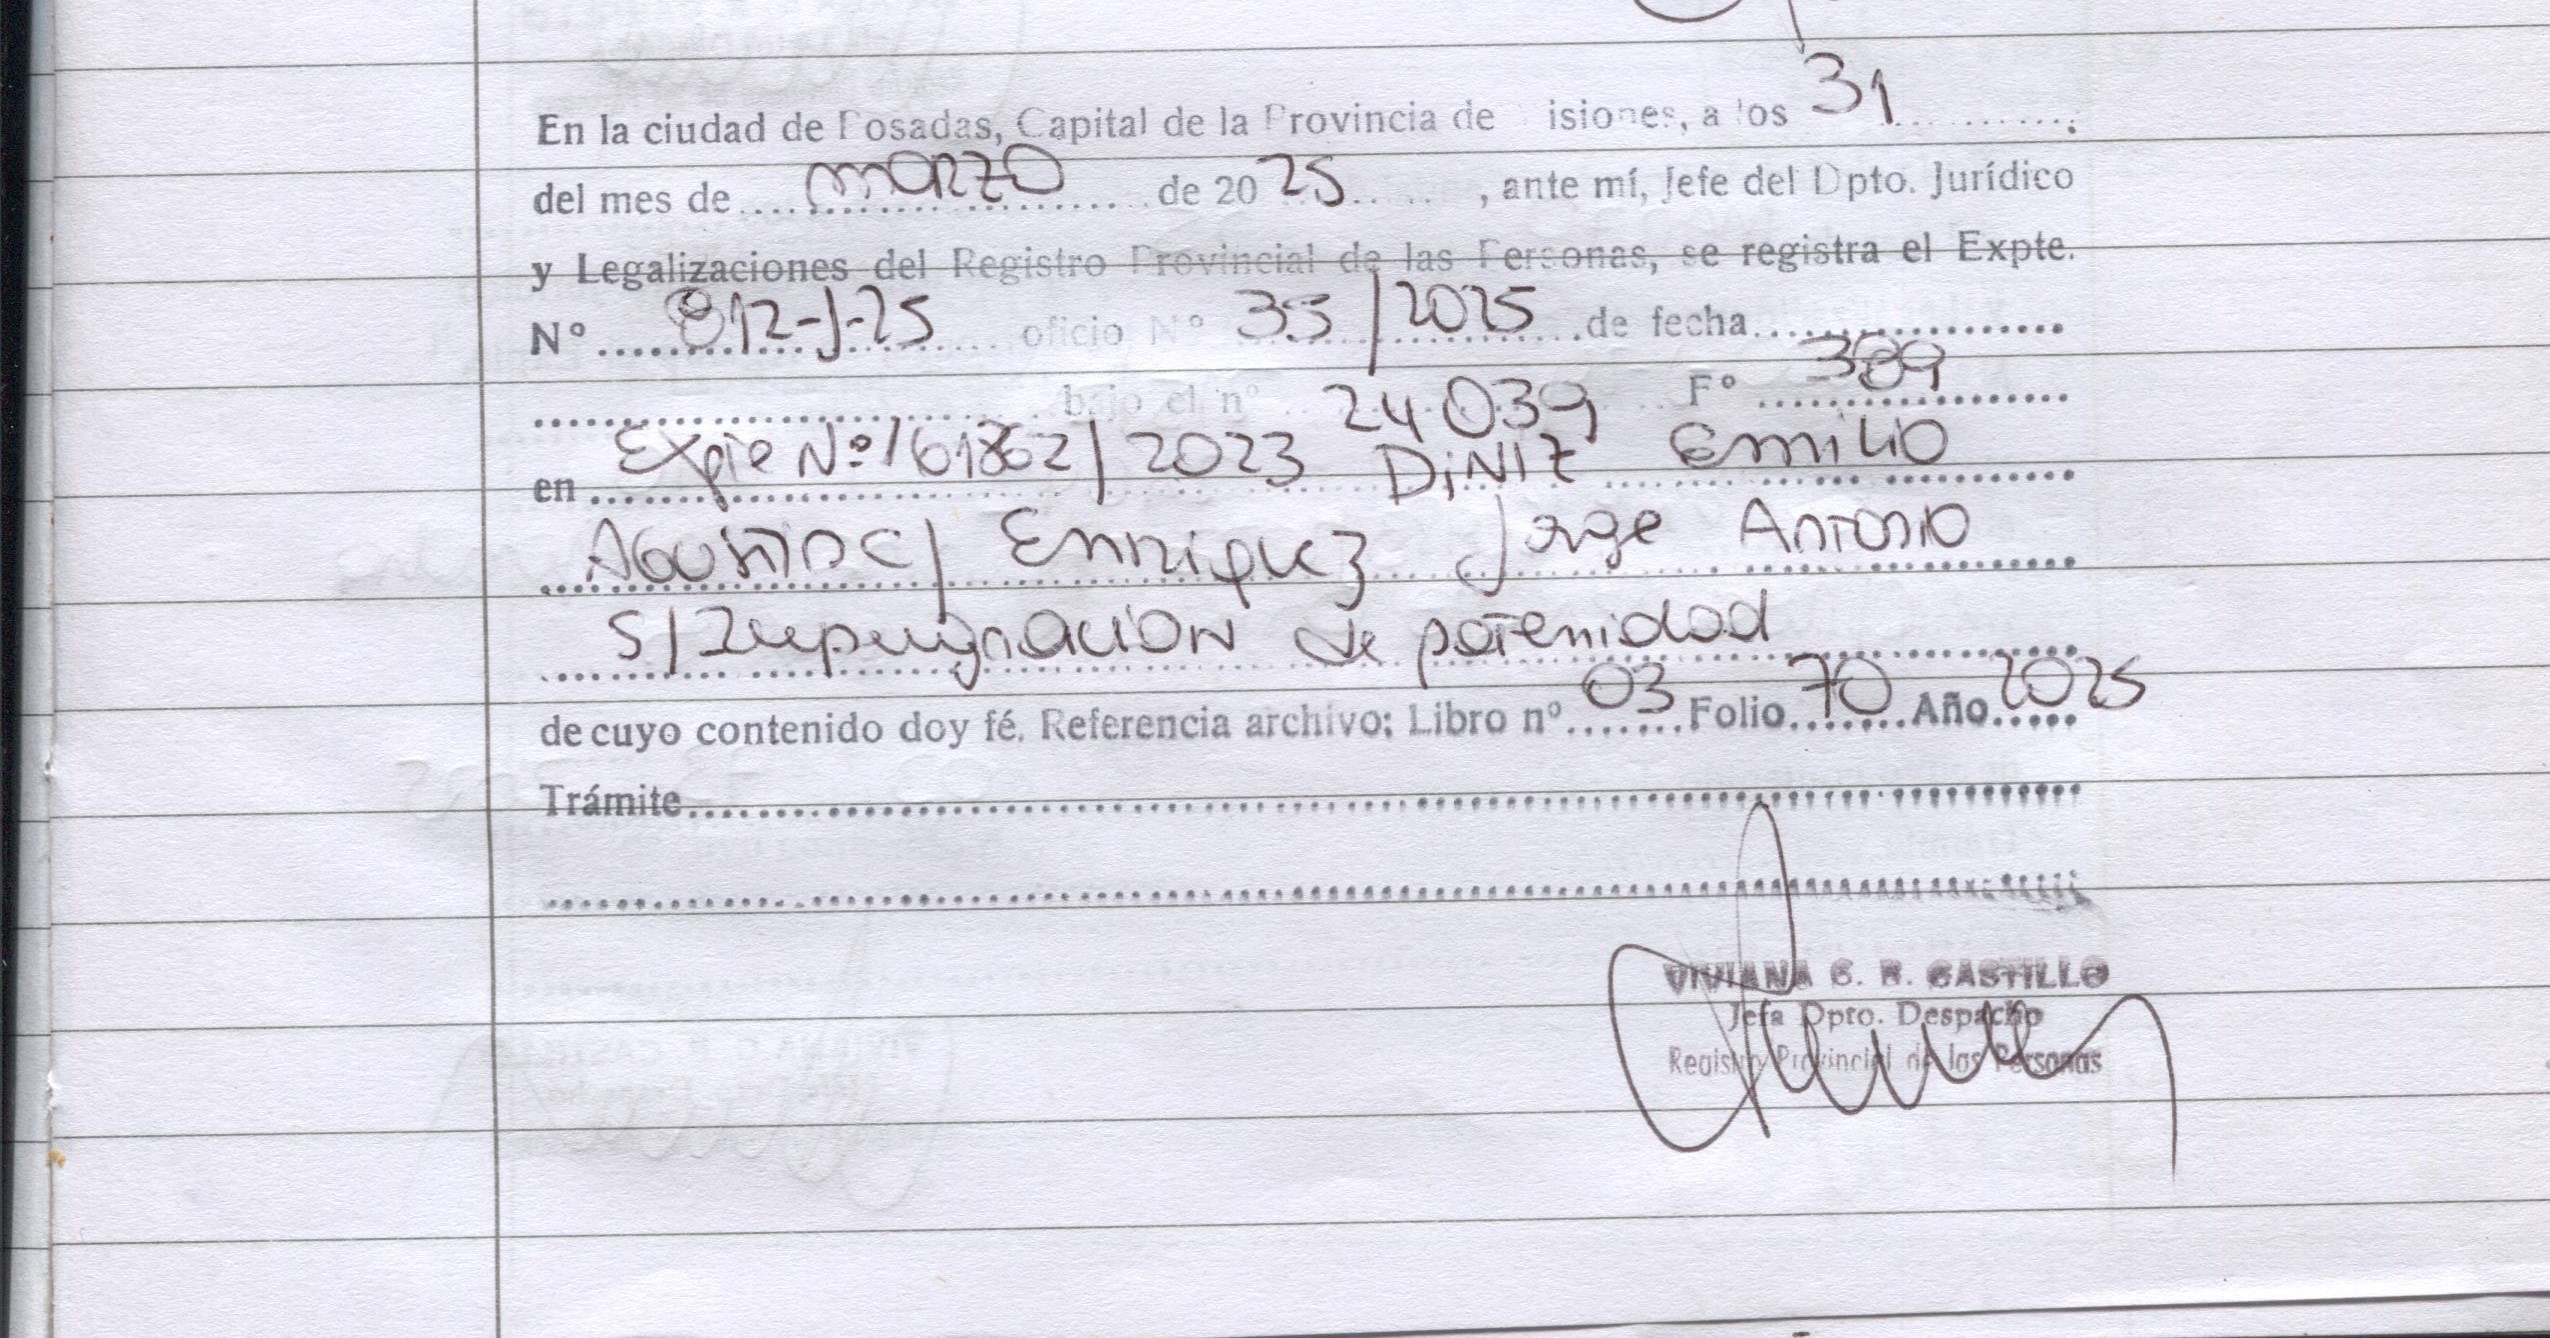 En la ciudad de Posadas, Capital de la Provincia de Misiones, a los 31
del mes de marzo de 2025, ante mí, Jefe del Dpto. Jurídico
y Legalizaciones del Registro Provincial de las Personas, se registra el Expte.
Nº 812-J-25 oficio Nº 35/2025 de fecha
bajo el nº 24039 Fº 389
en Expte Nº 161862/2023 DiNiz Emilio
Agustin c/ Enriquez Jorge Antonio
S/Impugnacion de paternidad
de cuyo contenido doy fé. Referencia archivo: Libro nº 03 Folio 70 Año 2025
Trámite
VIVIANA C. R. CASTILLO
Jefa Dpto. Despacho
Registro Provincial de las Personas